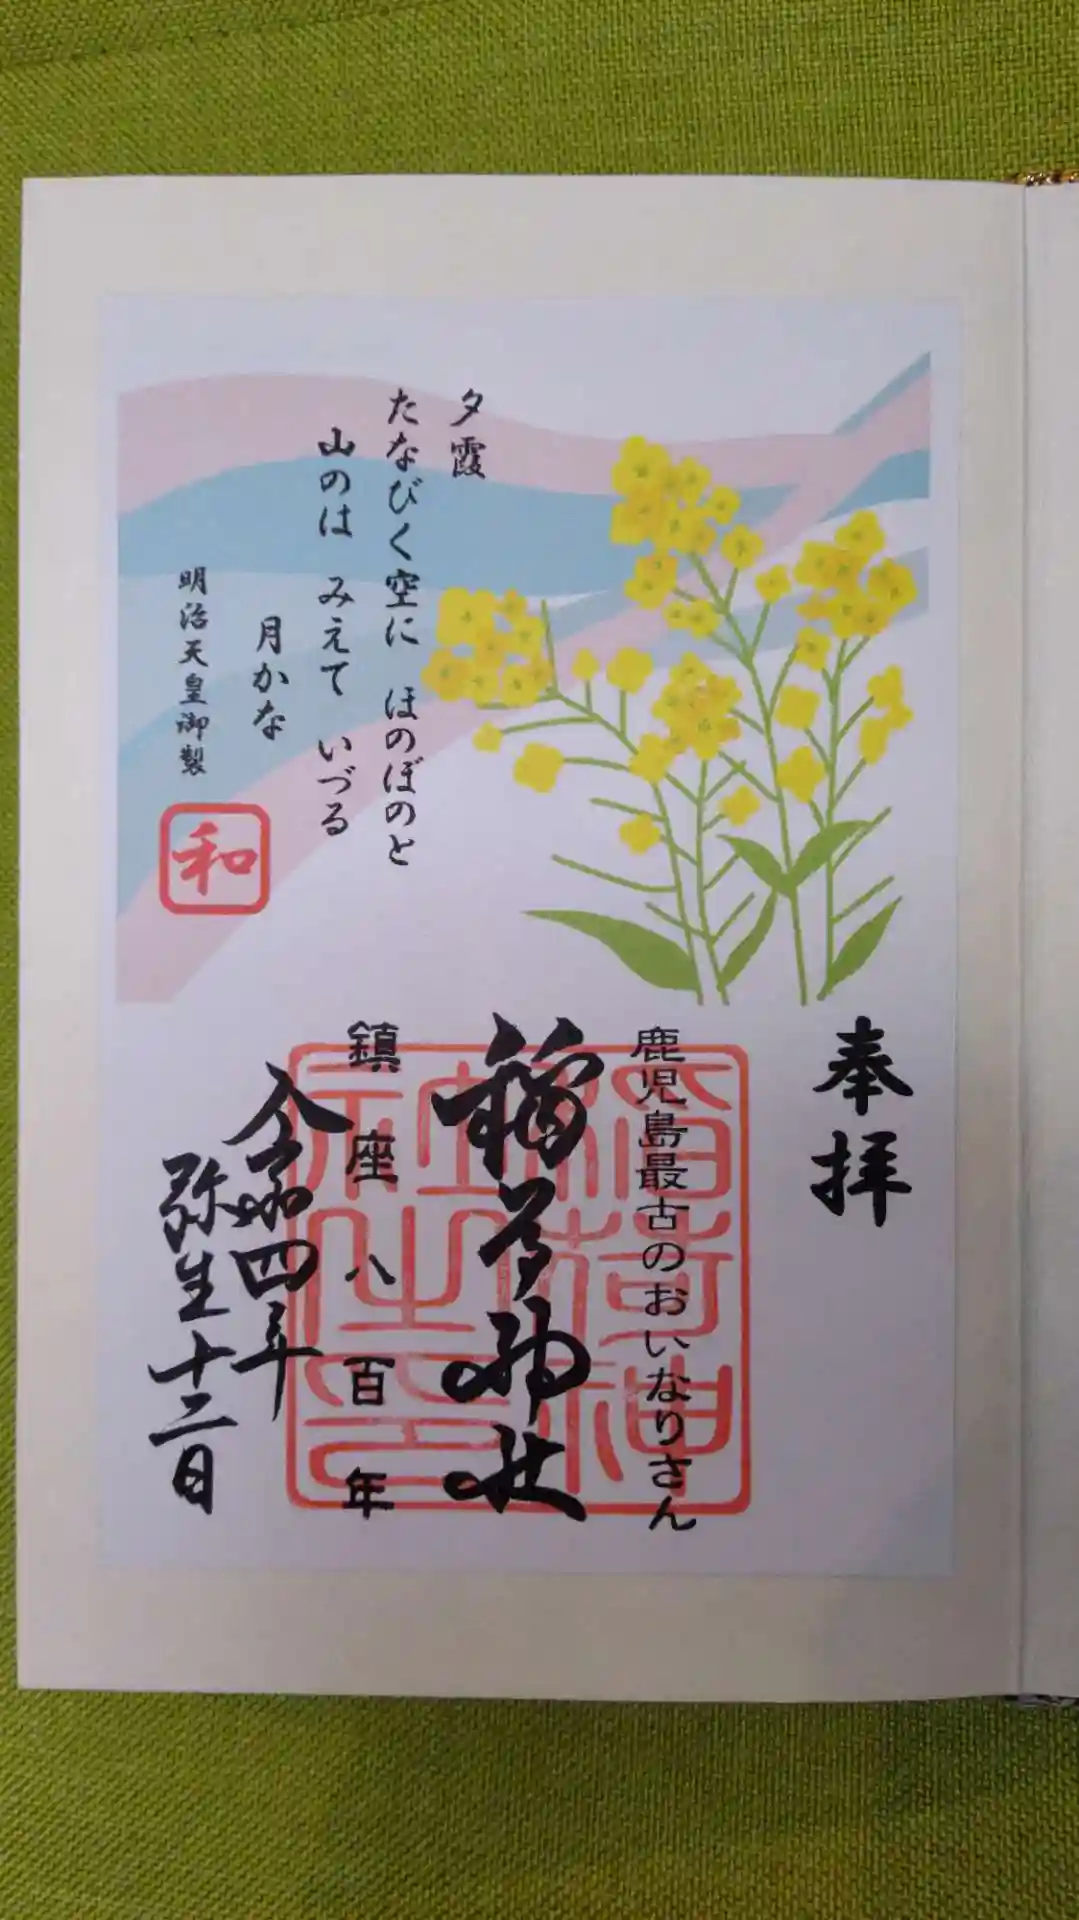 夕霞
たなびく空に ほのぼのと
山のは みえて いづる
月かな
明治天皇御製
和
奉拝
鹿児島最古のおいなりさん
稲荷神社
鎮座八百年
令和四年
弥生十二日
稲荷神社之印